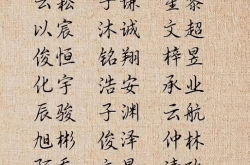 云崧 子谦 奎泰
以宸 沐诚 文超
俊恒 铭翔 梓昱
化宇 浩安 承业
辰骏 子渊 云航
旭彬 俊泽 仲林